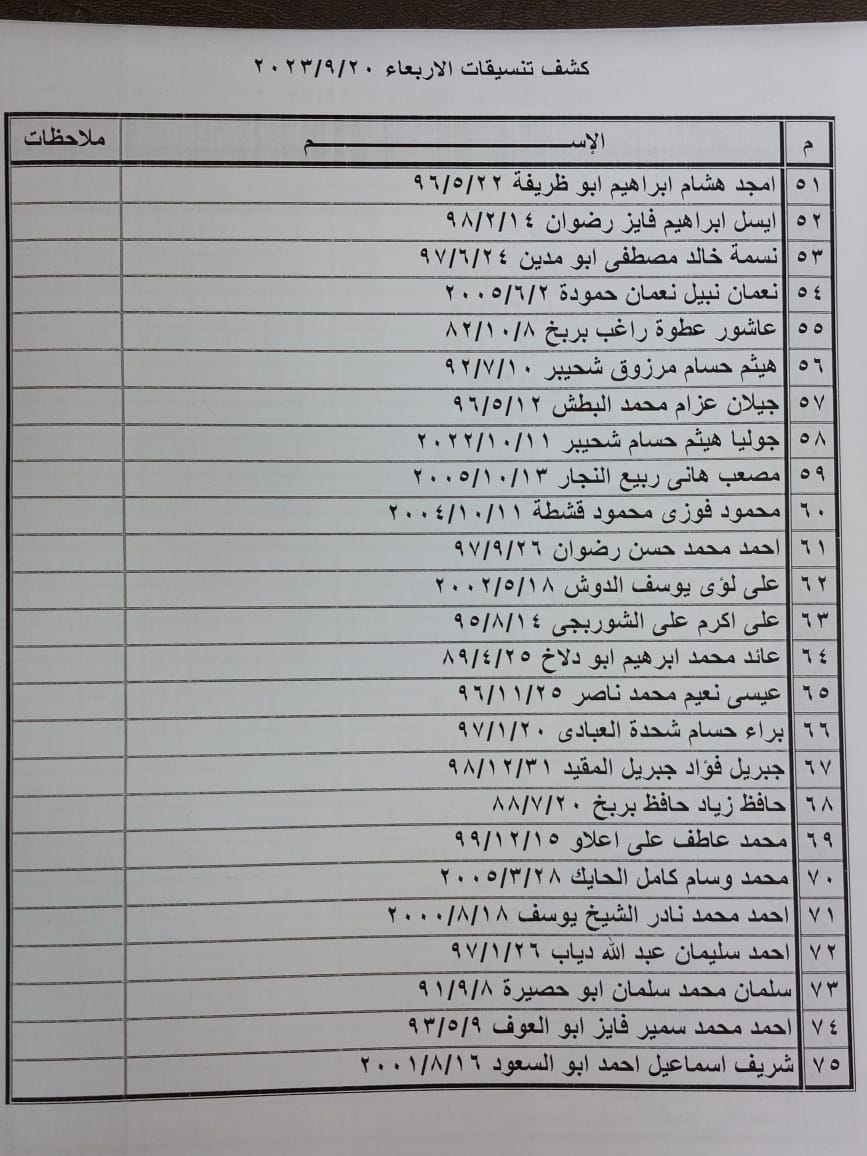 كشف تنسيقات الاربعاء ٢٠٢٣/٩/٢٠
م الإســـــــــــــــــــــــم ملاحظات
٥١ امجد هشام ابراهيم ابو ظريفة ٩٦/٥/٢٢
٥٢ ايسل ابراهيم فايز رضوان ٩٨/٢/١٤
٥٣ نسمة خالد مصطفى ابو مدين ٩٧/٦/٢٤
٥٤ نعمان نبيل نعمان حمودة ٢٠٠٥/٦/٢
٥٥ عاشور عطوة راغب بربخ ٨٢/١٠/٨
٥٦ هيثم حسام مرزوق شحيبر ٩٢/٧/١٠
٥٧ جيلان عزام محمد البطش ٩٦/٥/١٢
٥٨ جوليا هيثم حسام شحيبر ٢٠٢٢/١٠/١١
٥٩ مصعب هانى ربيع النجار ٢٠٠٥/١٠/١٣
٦٠ محمود فوزى محمود قشطة ٢٠٠٤/١٠/١١
٦١ احمد محمد حسن رضوان ٩٧/٩/٢٦
٦٢ على لؤى يوسف الدوش ٢٠٠٢/٥/١٨
٦٣ على اكرم على الشوربجى ٩٥/٨/١٤
٦٤ عائد محمد ابرهيم ابو دلاخ ٨٩/٤/٢٥
٦٥ عيسى نعيم محمد ناصر ٩٦/١١/٢٥
٦٦ براء حسام شحدة العبادى ٩٧/١/٢٠
٦٧ جبريل فؤاد جبريل المقيد ٩٨/١٢/٣١
٦٨ حافظ زياد حافظ بربخ ٨٨/٧/٢٠
٦٩ محمد عاطف على اعلاو ٩٩/١٢/١٥
٧٠ محمد وسام كامل الحايك ٢٠٠٥/٣/٢٨
٧١ احمد محمد نادر الشيخ يوسف ٢٠٠٠/٨/١٨
٧٢ احمد سليمان عبد الله دياب ٩٧/١/٢٦
٧٣ سلمان محمد سلمان ابو حصيرة ٩١/٩/٨
٧٤ احمد محمد سمير فايز ابو العوف ٩٣/٥/٩
٧٥ شريف اسماعيل احمد ابو السعود ٢٠٠١/٨/١٦